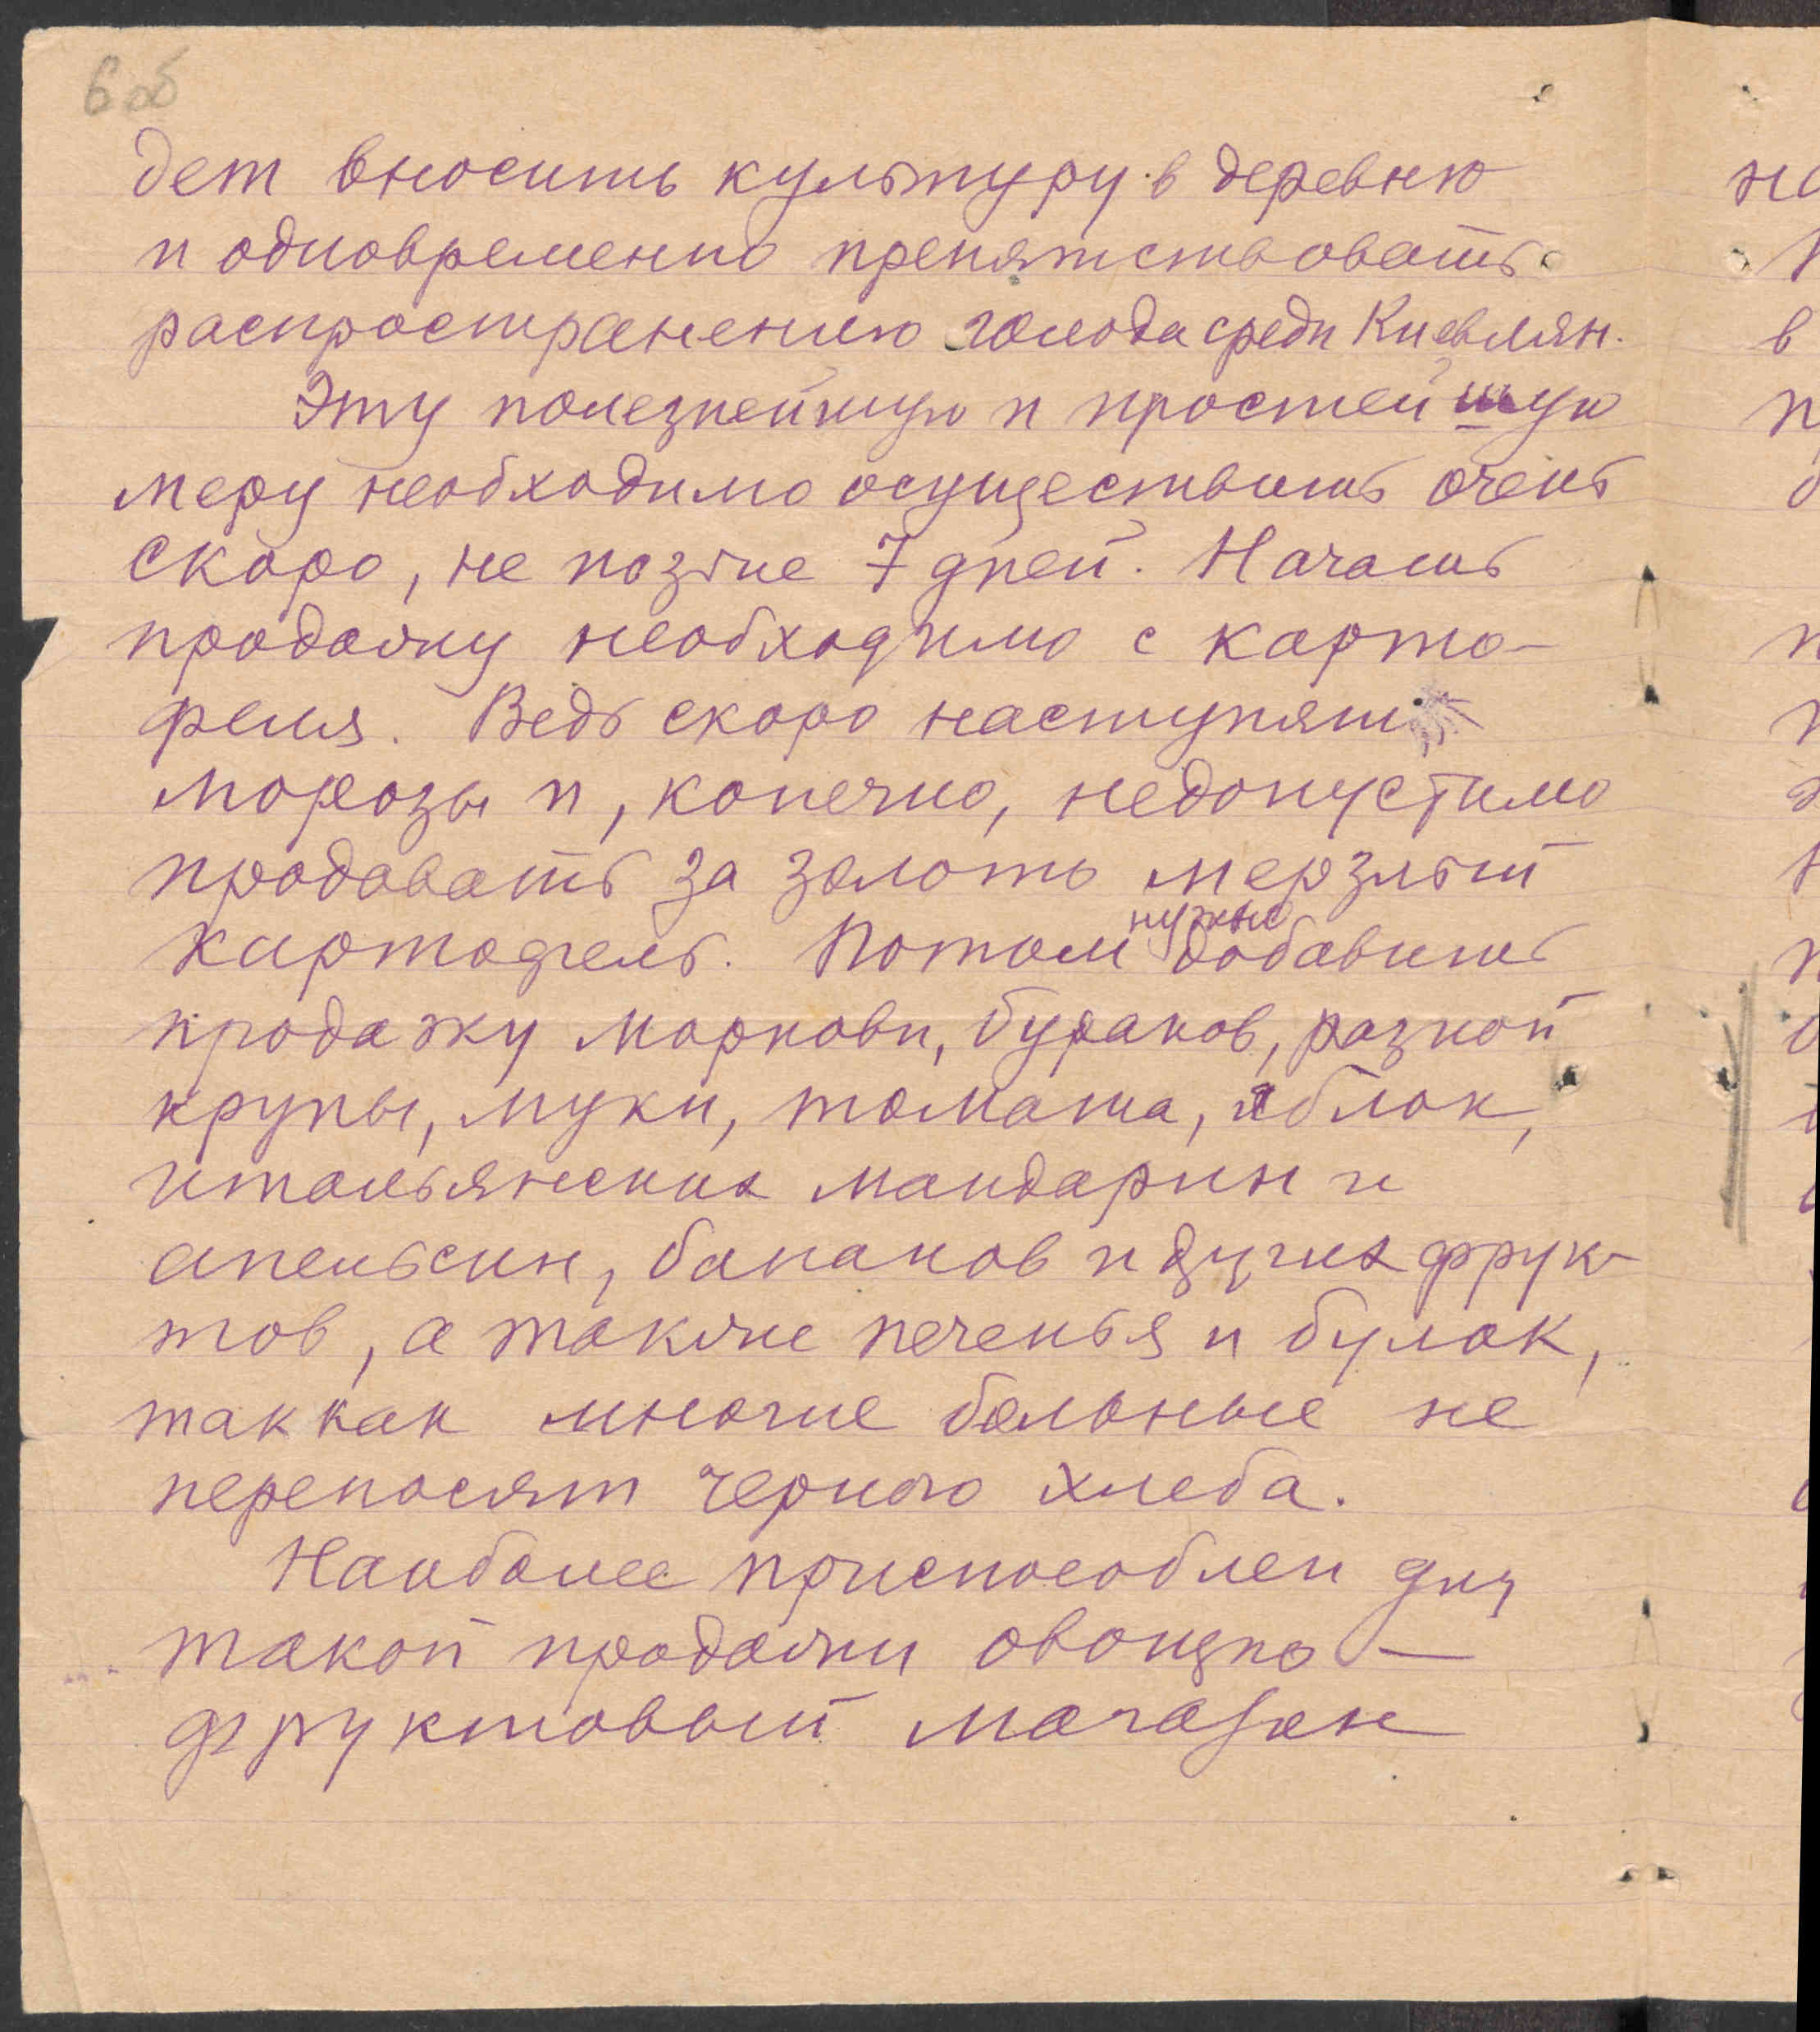 6 об
дет вносить культуру в деревню
и одновременно препятствовать
распространению голода среди Киевлян.
Эту полезнейшую и простейшую
меру необходимо осуществить очень
скоро, не позже 7 дней. Начать
продажу необходимо с карто-
феля. Ведь скоро наступят
морозы и, конечно, недопустимо
продавать за золото мерзлый
картофель. Потом нужно добавить
продажу моркови, бураков, разной
крупы, муки, томата, яблок,
итальянских мандарин и
апельсин, бананов и других фрук-
тов, а также печенья и булок,
так как многие больные не
переносят черного хлеба.
Наиболее приспособлен для
такой продажи овощно-
фруктовый магазин